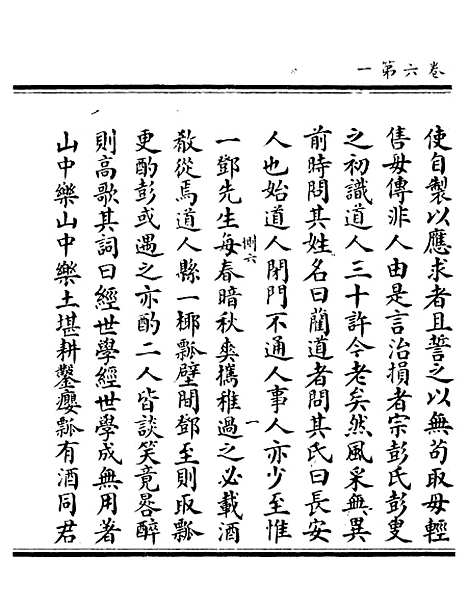 卷六第一
使自製以應求者且誓之以無苟取毋輕
售毋傳非人由是言治損者宗彭氏彭叟
之初識道人三十許今老矣然風采無異
前時問其姓名曰藺道者問其氏曰長安
人也始道人閉門不通人事人亦少至惟
一鄧先生每春暗秋爽攜稚過之必載酒
殽從焉道人縣一椰瓢壁間鄧至則取瓢
更酌彭或遇之亦酌二人皆談笑竟晷醉
則高歌其詞曰經世學經世學成無用著
山中樂山中樂土堪耕鑿癭瓢有酒同君
惻六
一